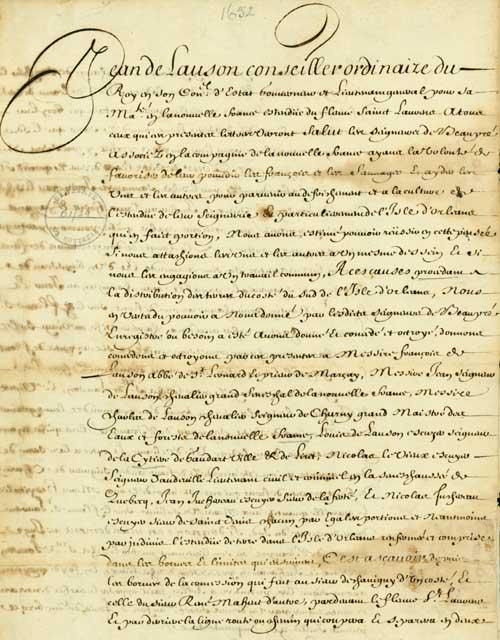 1652
Jean de Lauson conseiller ordinaire du
Roy en son Con.l d'Estat Gouverneur et Lieutenant general pour sa
Ma.té en la nouvelle France estendüe du fleuve Saint Laurens A tous
ceux qui ces presentes lettres verront Salut les seigneurs de Beaupré
Associez en la compagnie de la nouvelle france ayans la volonté de
favoriser de leur pouvoir les françois et les Sauvages Et ayder les
Uns et les autres pour parvenir au defrichement et a la culture de
l'estendüe de leur Seigneurie & particulierement de l'Isle d'Orleans
qui en fait portion, Nous avons estimé pouvoir reüssir en cette
Si nous attachions les Uns et les autres a Un mesme dessein Et Si
nous les engagions a Un travail commun, A ces causes procedant a
la distribution des terres du costé du Sud de l'Isle d'Orleans, Nous
en vertu du pouvoir a Nous donné par lesdits Seigneurs de Beaupré
Enregistré ou besoin a esté Avons donné et concedé et octroyé, donnons
concedons et octroyons par ces presentes a Messire françois de
Lauson Abbé de S.t Leonard et prieur de Marçay, Messire Jean Seigneur
de Lauson chevalier grand Seneschal de la nouvelle france, Messire
Charles de Lauson chevalier Seigneur de Charny grand Maistre des
Eaux et forests de la nouvelle france, Louis de Lauson escuyer Seigneur
de la Cytiere de Gaudarville & de , Nicolas le Vieux escuyer
Seigneur Lieutenant civil et criminel en la Seneschaussée de
Quebecq, Jean Juchereau escuyer Sieur de la ferté, Et Nicolas Juchereau
escuyer Sieur de Saint Denis chacun par Egales portions et Neantmoins
par indivis l'estendüe de terre dans l'Isle d'Orleans enfermée et comprise
dans les bornes et limites qui ensuivent, C'est a scavoir depuis
les bornes de la concession qui fait au Sieur de Chavigny d'un costé, Et
celle du Sieur René Maheut d'autre, pardevant le fleuve S.t Laurens
Et par derriere la ligne route ou chemin qui coupera Et Separera en deux